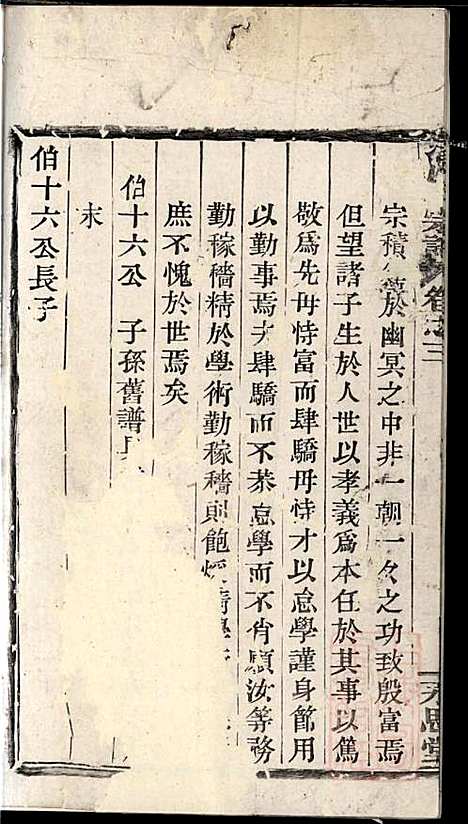 宗積於幽冥之中非一朝一夕之功致殷富焉
但望諸子生於人世以孝義爲本任於其事以篤
敬爲先毋恃富而肆驕毋恃才以怠學謹身節用
以勤事焉才肆驕而不恭怠學而不肖願汝等務
勤稼穡精於學術勤稼穡則飽煖
庶不愧於世焉矣
伯十六公 子孫舊譜
末
伯十六公長子
宗譜 卷之三
永思堂